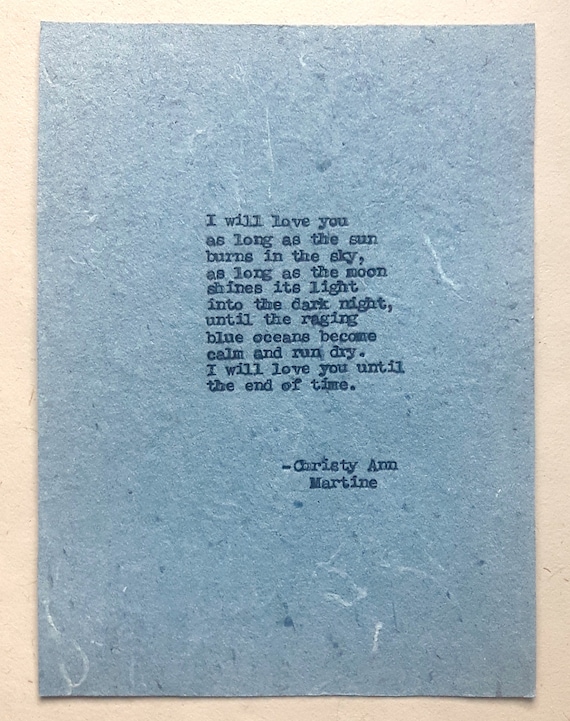 I will love you
as long as the sun
burns in the sky,
as long as the moon
shines its light
into the dark night,
until the raging
blue oceans become
calm and run dry.
I will love you until
the end of time.
-Christy Ann
Martine